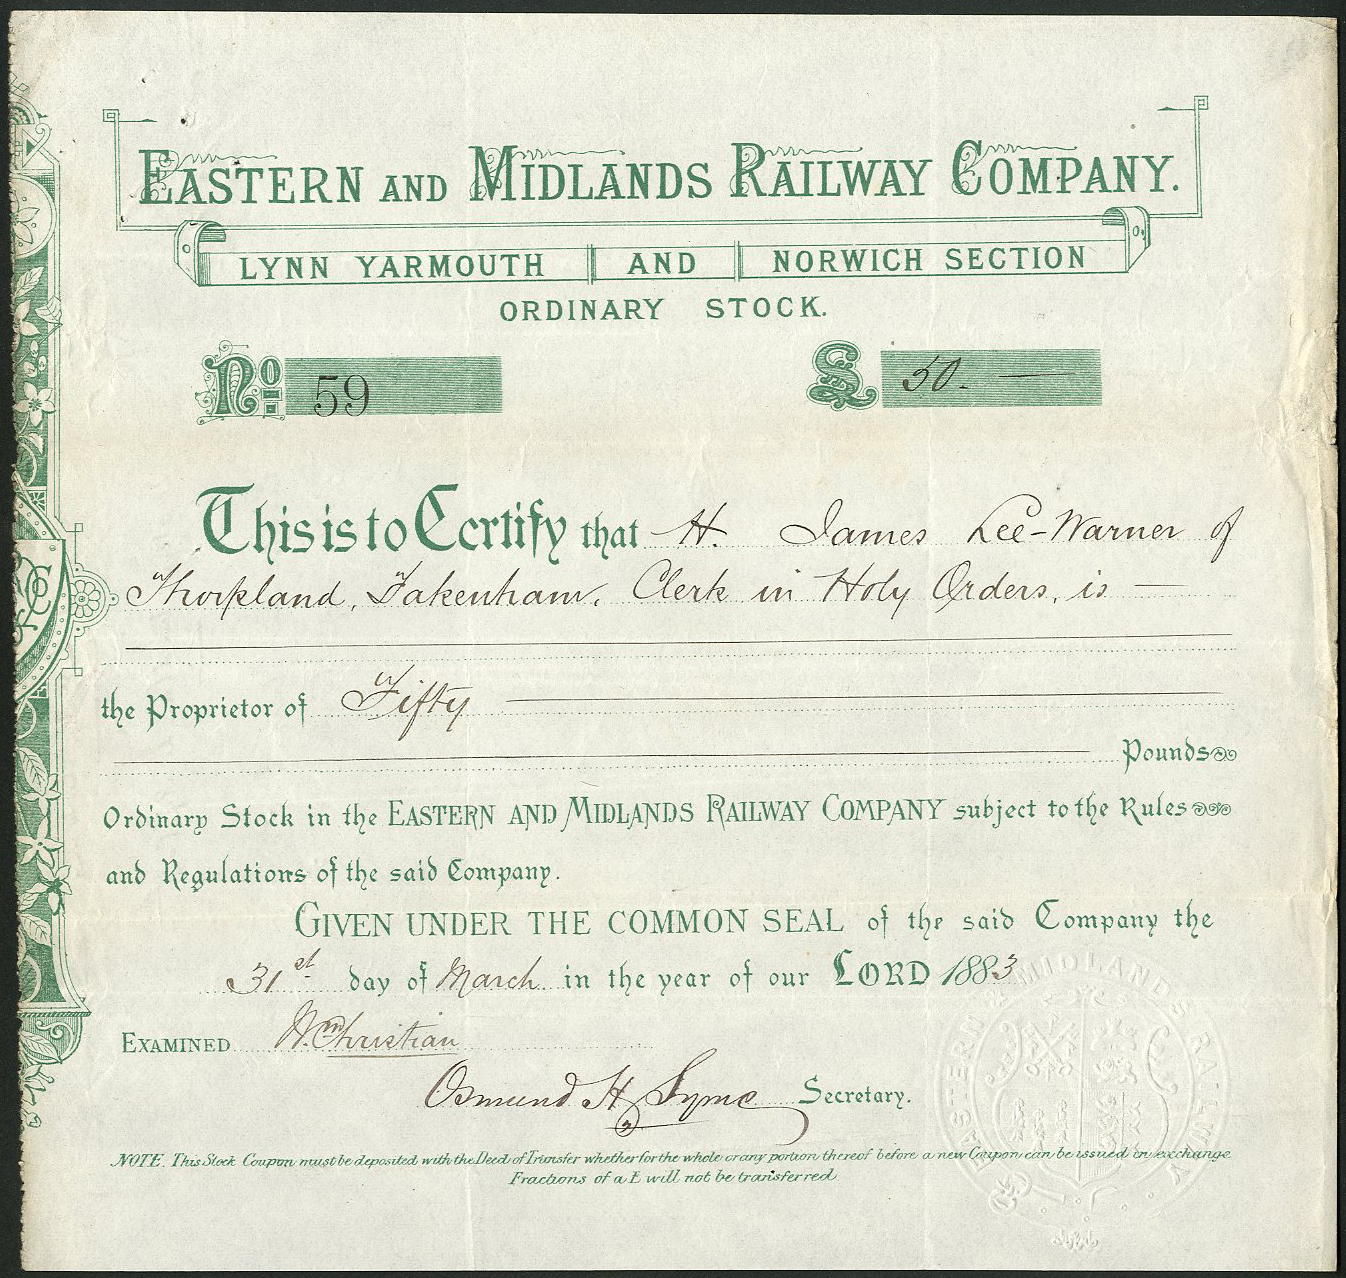 EASTERN AND MIDLANDS RAILWAY COMPANY.
LYNN YARMOUTH AND NORWICH SECTION
ORDINARY STOCK.
No. 59 £ 50. —
This is to Certify that H. James Lee-Warner of
Thorpland, Fakenham, Clerk in Holy Orders, is —
the Proprietor of Fifty
Pounds
Ordinary Stock in the EASTERN AND MIDLANDS RAILWAY COMPANY subject to the Rules
and Regulations of the said Company.
GIVEN UNDER THE COMMON SEAL of the said Company the
31st day of March in the year of our LORD 1883
EXAMINED Wm Christian
Osmund H. Syme Secretary.
NOTE. This Stock Coupon must be deposited with the Deed of Transfer whether for the whole or any portion thereof before a new Coupon can be issued in exchange
Fractions of a £ will not be transferred
EASTERN & MIDLANDS RAILWAY